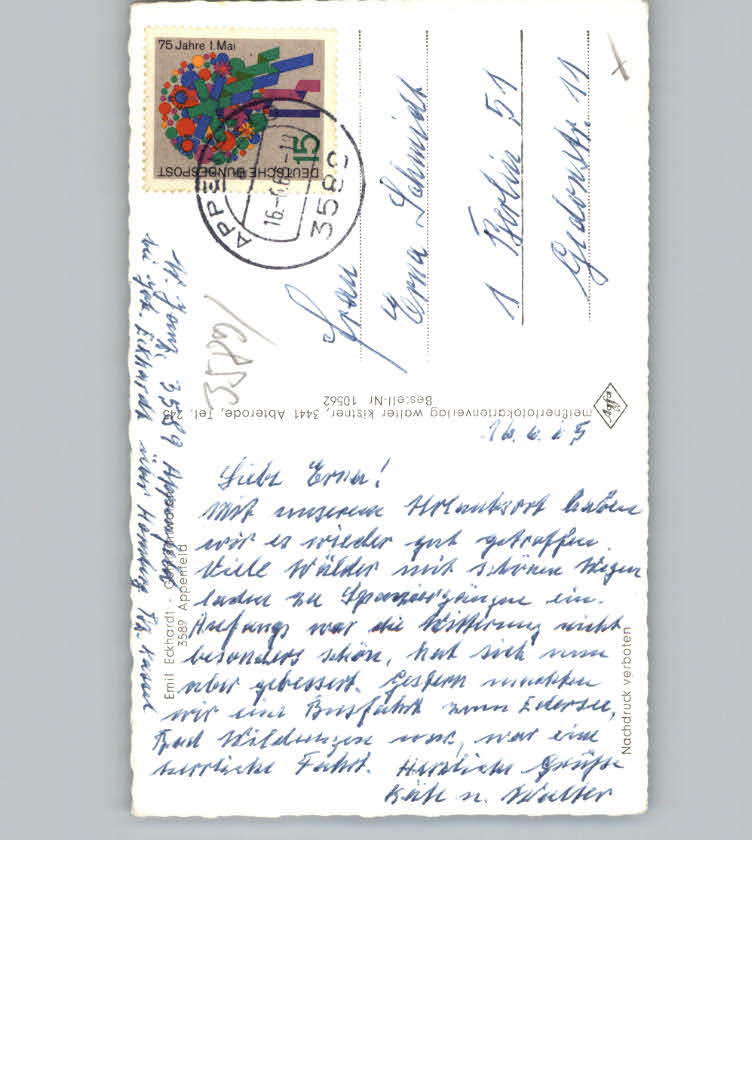 75 Jahre 1. Mai
15
DEUTSCHE BUNDESPOST
APPE
16.-6.6
3589
Frau
Erna Schmidt
1 Berlin 51
Gedonstr. 11
bei Gött. Eckhardt über Homberg Bz. Kassel
3589 Appenfeld
meißnerfotokartenverlag walter kistner, 3441 Abterode, Tel. 245
Bestell-Nr 10562
Agfa
Emil Eckhardt
3589 Appenfeld
Nachdruck verboten
16.6.65
Liebe Erna!
Mit unserem Urlaubsort haben
wir es wieder gut getroffen.
Viele Wälder mit schönen Wegen
laden zu Spaziergängen ein.
Anfangs war die Witterung nicht
besonders schön, hat sich nun
aber gebessert. Gestern machten
wir eine Busfahrt zum Edersee,
Bad Wildungen usw., war eine
herrliche Fahrt. Herzliche Grüße
Käte u. Walter